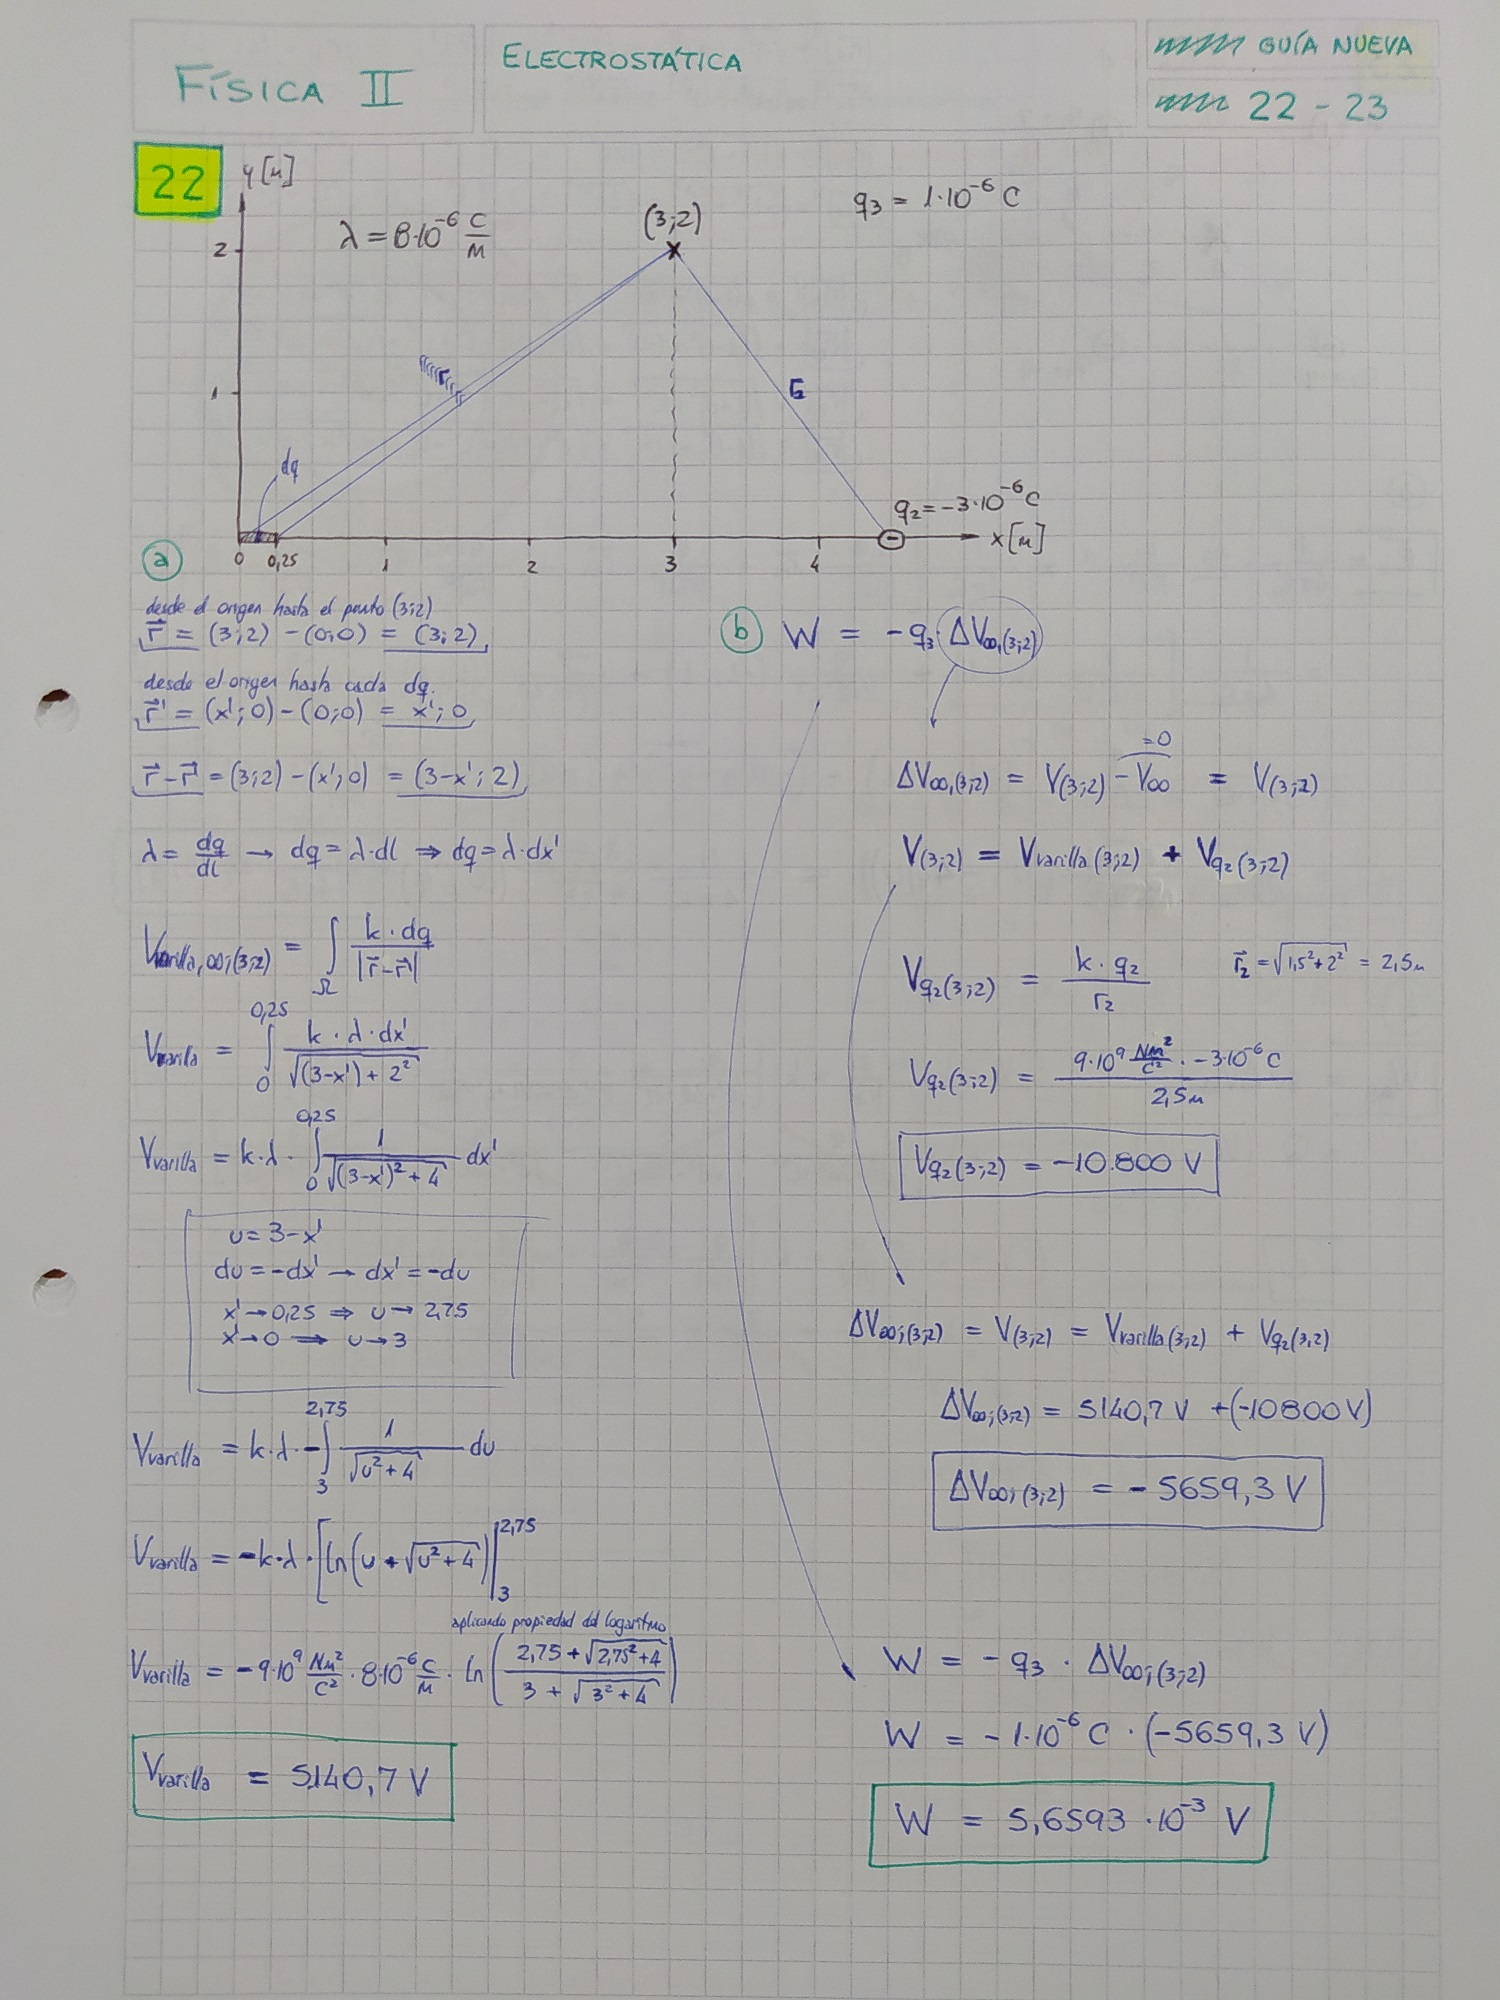 FÍSICA II
ELECTROSTÁTICA
GUÍA NUEVA
22 - 23
22
y [m]
λ = 8·10⁻⁶ C/m
(3;2)
q₃ = 1·10⁻⁶ C
2
1
dq
r₂
q₂ = -3·10⁻⁶ C
0 0,25 1 2 3 4 x [m]
a
desde el origen hasta el punto (3;2)
r⃗ = (3;2) - (0;0) = (3;2)
desde el origen hasta cada dq.
r⃗' = (x';0) - (0;0) = x';0
r⃗ - r⃗' = (3;2) - (x';0) = (3-x';2)
λ = dq/dl → dq = λ·dl ⇒ dq = λ·dx'
Vvarilla,∞;(3;2) = ∫Ω k·dq / |r⃗ - r⃗'|
Vvarilla = ∫₀^0,25 k·λ·dx' / √((3-x') + 2²)
Vvarilla = k·λ · ∫₀^0,25 1/√((3-x')² + 4) dx'
u = 3-x'
du = -dx' → dx' = -du
x' → 0,25 ⇒ u → 2,75
x' → 0 ⇒ u → 3
Vvarilla = k·λ · -∫₃^2,75 1/√(u² + 4) du
Vvarilla = -k·λ · [ln(u + √(u² + 4))|₃^2,75
aplicando propiedad del logaritmo
Vvarilla = -9·10⁹ Nm²/C² · 8·10⁻⁶ C/m · ln((2,75 + √(2,75² + 4)) / (3 + √(3² + 4)))
Vvarilla = 5140,7 V
b W = -q₃·ΔV∞,(3;2)
=0
ΔV∞,(3;2) = V(3;2) - V∞ = V(3;2)
V(3;2) = Vvarilla(3;2) + Vq₂(3;2)
Vq₂(3;2) = k·q₂ / r₂ r⃗₂ = √(1,5² + 2²) = 2,5m
Vq₂(3;2) = 9·10⁹ Nm²/C² · -3·10⁻⁶ C / 2,5m
Vq₂(3;2) = -10.800 V
ΔV∞;(3;2) = V(3;2) = Vvarilla(3;2) + Vq₂(3;2)
ΔV∞;(3;2) = 5140,7 V + (-10800 V)
ΔV∞;(3;2) = - 5659,3 V
W = -q₃ · ΔV∞;(3;2)
W = -1·10⁻⁶ C · (-5659,3 V)
W = 5,6593 ·10⁻³ V